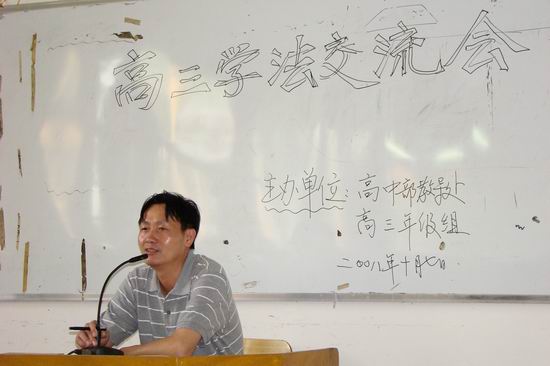 高三学法交流会
主办单位：高中部教导处
高三年级组
二00八年十月七日